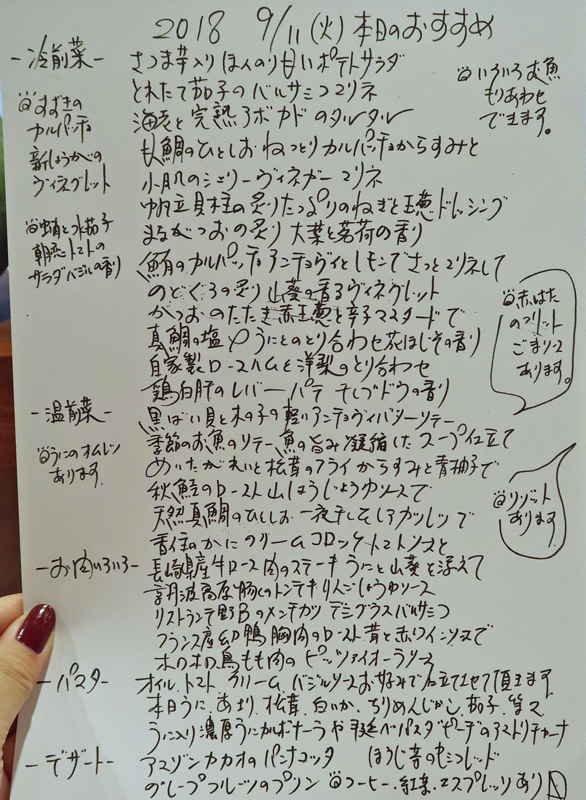 2018 9/11 (火) 本日のおすすめ
-冷前菜-
さつま芋入りほんのり甘いポテトサラダ
とれたて茄子のバルサミコマリネ
海老と完熟アボカドのタルタル
甘鯛のひとしおねっとりカルパッチョからすみと
小肌のシェリーヴィネガーマリネ
帆立貝柱の炙りたっぷりのねぎと玉葱ドレッシング
まながつおの炙り 大葉と茗荷の香り
鮪のカルパッチョアンチョヴィとレモンでさっとマリネして
のどぐろの炙り 山葵の香るヴィネグレット
かつおのたたき赤玉葱と辛子マスタードで
真鯛の塩〆うにとのとり合わせ花ほじその香り
自家製ロースハムと洋梨のとり合わせ
鶏白肝のレバーパテ 干しブドウの香り
すずきの
カルパッチョ
新しょうがの
ヴィネグレット
蛸と水茄子
朝恋トマトの
サラダバジルの香り
いろいろお魚
もりあわせ
できます。
赤はた
のフリット
ごまソース
あります。
-温前菜-
黒ばい貝と木の子の軽いアンチョヴィバターソテー
季節のお魚のソテー 魚の旨み凝縮したスープ仕立て
めいたがれいと松茸のフライからすみと青柚子で
秋鮭のロースト山ほうじょうゆソースで
天然真鯛のひとしお一夜干しミレアカツレツで
香住のかにクリームコロッケトマトソースと
うにのオムレツ
あります
リゾット
あります
-お肉いろいろ-
長崎県産牛ロース肉のステーキ うにと山葵を添えて
京丹波高原豚のトンテキりんごしょうゆソース
リストランテ野Bのメンチカツ デミグラスバルサミコ
フランス産 鴨胸肉のロースト 茸と赤ワインソースで
ホロホロ鳥もも肉のピッツァイオーラソース
-パスタ-
オイル、トマト クリーム バジルソースお好みで仕立てさせて頂きます
本日うに、あさり、松茸、白いか、ちりめんじゃこ、茄子、
うに入り濃厚うにカルボナーラや
-デザート-
アマゾンカカオのパンナコッタ ほうじ茶のセミフレッド
グレープフルーツのプリン コーヒー、紅茶、エスプレッソあり